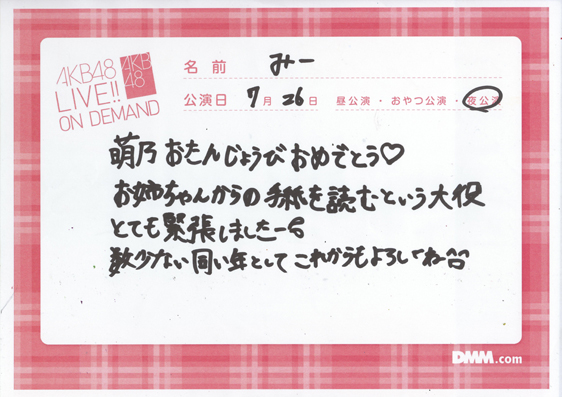 AKB48
LIVE!!
ON DEMAND
AKB
48
名前 みー
公演日 7月26日 昼公演・おやつ公演・夜公演
萌乃 おたんじょうび おめでとう♡
お姉ちゃんからの手紙を読むという大役
とても緊張しましたー
数少ない同い年として これからもよろしくねー
DMM.com